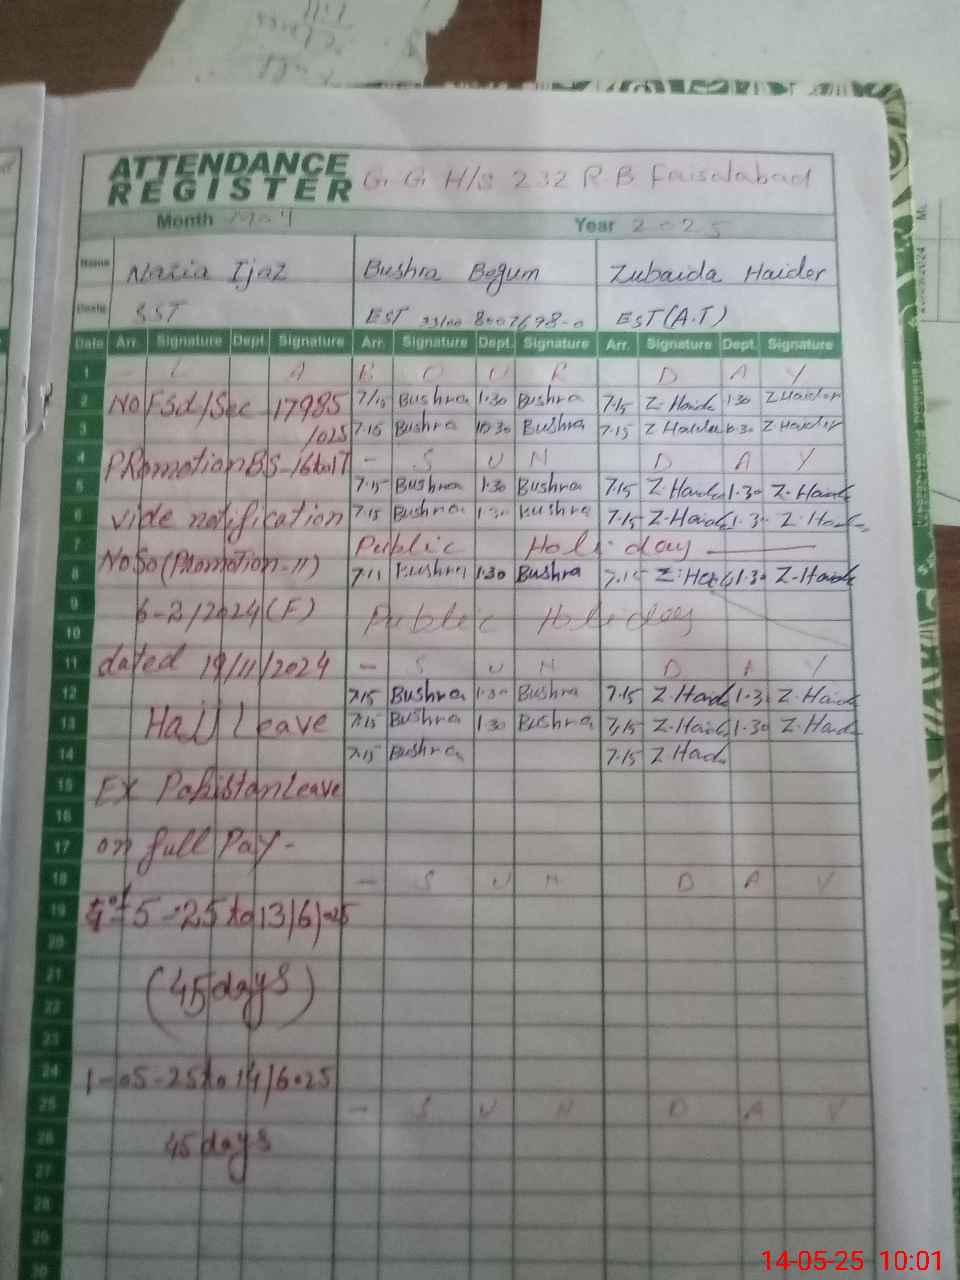 ATTENDANCE
REGISTER G. G H/S 232 R.B Faisalabad
Month May Year 2025
Name Nazia Ijaz Bushra Begum Zubaida Haider
SST EST EST (A.T)
Date Arr. Signature Dept. Signature Arr. Signature Dept. Signature Arr. Signature Dept. Signature
1 - L A B O U R D A Y
2 No Fsd/Sec 17985 7/15 Bushra 1·30 Bushra 7·15 Z. Haide 1·30 Z Haider
/025
3 7·15 Bushra Bushra 7·15 Z Haider Z Haider
4 Promotion BS-16 to 17 - S U N D A Y
5 7·15 Bushra 1·30 Bushra 7·15 Z. Haide 1·30 Z. Haide
6 vide notification 7·15 Bushra 1·30 Bushra 7·15 Z. Haide 1·3 Z. Haide
7 Public Holiday
8 No So (Promotion-II) Bushra 1·30 Bushra 7·15 1·30 Z. Haide
9 6-2/2024 (F) Public Holiday
10
11 dated 19/11/2024 - S U N D A Y
12 7·15 Bushra 1·30 Bushra 7·15 Z. Haide 1·3 Z. Haide
13 Hajj Leave 7·15 Bushra 1·30 Bushra 7·15 Z. Haide 1·30 Z. Haide
14 7·15 Bushra 7·15 Z Haide
15 EX Pakistan Leave
16
17 on full Pay -
18 - S U N D A Y
19 5-25 to 13/6/25
20
21 (45 days)
22
23
24 1-05-25 to 14/6·25
25 - S U N D A Y
26 45 days
27
28
29
30
14-05-25 10:01